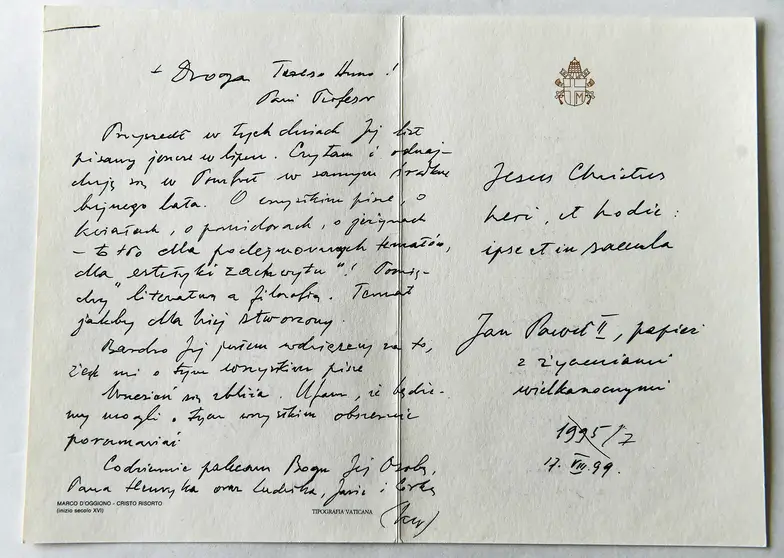 + Droga Tereso Anno!
Pani Profesor
Przyszedł w tych dniach Jej list
pisany jeszcze w lipcu. Czytam i odnaj-
duję się w w samym środku
lata. O wszystkim pisze, o
kwiatach, o pomidorach, o jeżynach
– to tło dla podejmowanych tematów,
dla "estetyki zachwytu"! Pomię-
dzy literaturą a filozofią. Temat
jakby dla niej stworzony.
Bardzo Jej jestem wdzięczny za to,
że mi o tym wszystkim pisze
Wrzesień się zbliża. Ufam, że będzie-
my mogli o tym wszystkim obszernie
porozmawiać
Codziennie polecam Bogu Jej Osobę,
Pana Henryka oraz Ludwika, i
MARCO D'OGGIONO - CRISTO RISORTO
(inizio secolo XVI)
TIPOGRAFIA VATICANA
Jesus Christus
heri, et hodie:
ipse et in saecula
Jan Paweł II, papież
z życzeniami
wielkanocnymi
1995/7
17. VIII. 99.